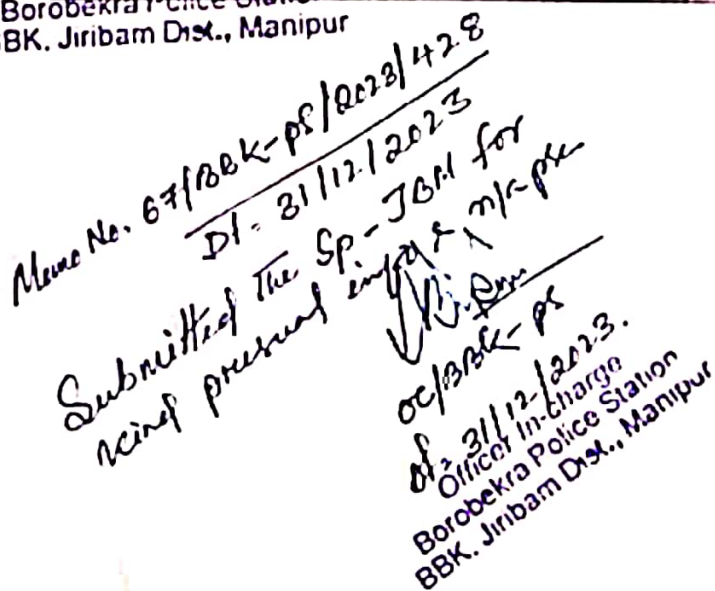 Borobekra Police Station
BBK. Jiribam Dist., Manipur
Memo No. 67/BBK-PS/2023/428
Dt- 31/12/2023
Submitted The Sp-JBM for
kind perusual info & n/a pse
OC/BBK-PS
dt: 31/12/2023.
Officer In-Charge
Borobekra Police Station
BBK. Jiribam Dist., Manipur